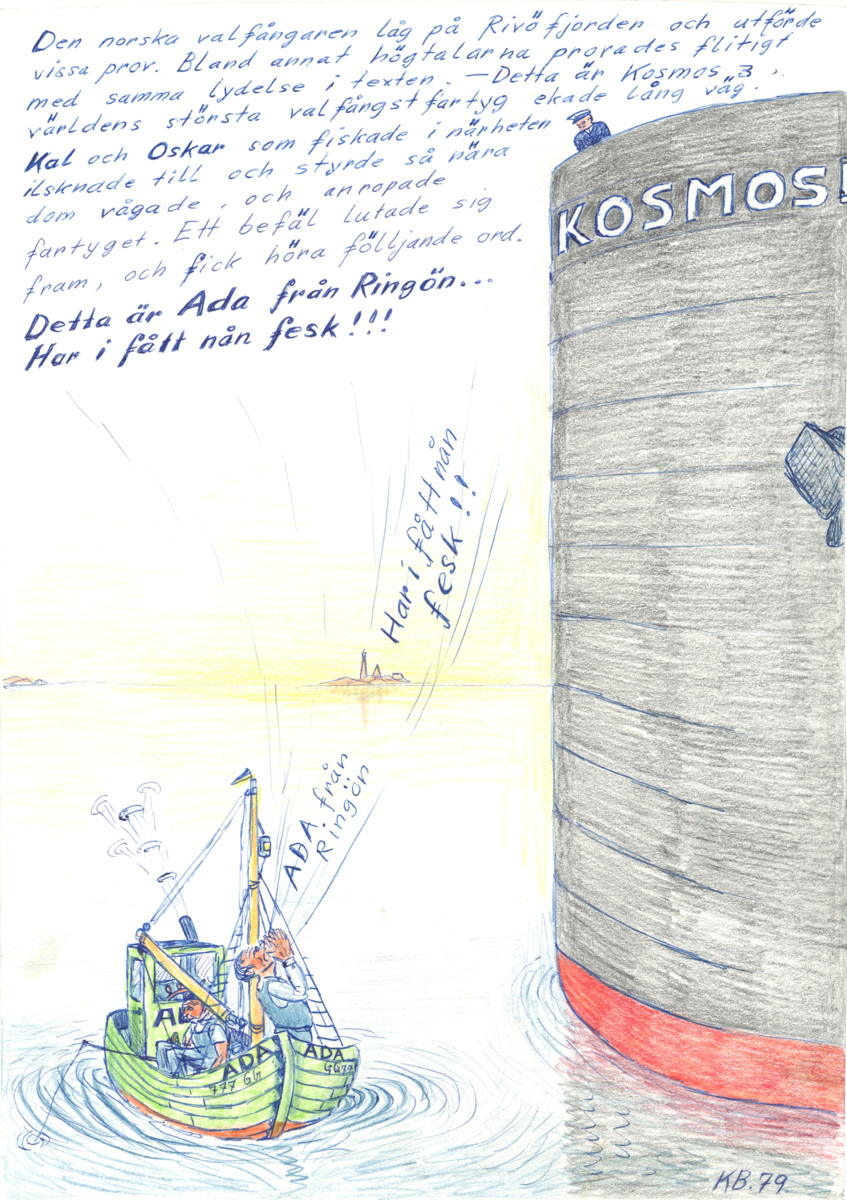 Den norska valfångaren låg på Rivöfjorden och utförde
vissa prov. Bland annat högtalarna provades flitigt
med samma lydelse i texten. – Detta är Kosmos 3,
världens största valfångstfartyg ekade lång väg.
Kal och Oskar som fiskade i närheten
ilsknade till och styrde så nära
dom vågade, och anropade
fartyget. Ett befäl lutade sig
fram, och fick höra fölljande ord.
Detta är Ada från Ringön...
Har i fått nån fesk!!!
KOSMOS
Har i fått nån
fesk!!
ADA från
Ringön
ADA
777 GG
ADA
KB.79